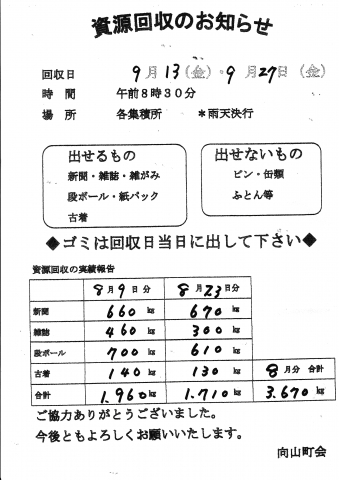 資源回収のお知らせ
回収日 9月13日(金)・9月27日(金)
時間 午前8時30分
場所 各集積所 *雨天決行
出せるもの
新聞・雑誌・雑がみ
段ボール・紙パック
古着
出せないもの
ビン・缶類
ふとん等
◆ゴミは回収日当日に出して下さい◆
資源回収の実績報告
8月9日分 8月23日分
新聞 660kg 670kg
雑誌 460kg 300kg
段ボール 700kg 610kg
古着 140kg 130kg 8月分 合計
合計 1.960kg 1.710kg 3.670kg
ご協力ありがとうございました。
今後ともよろしくお願いいたします。
向山町会